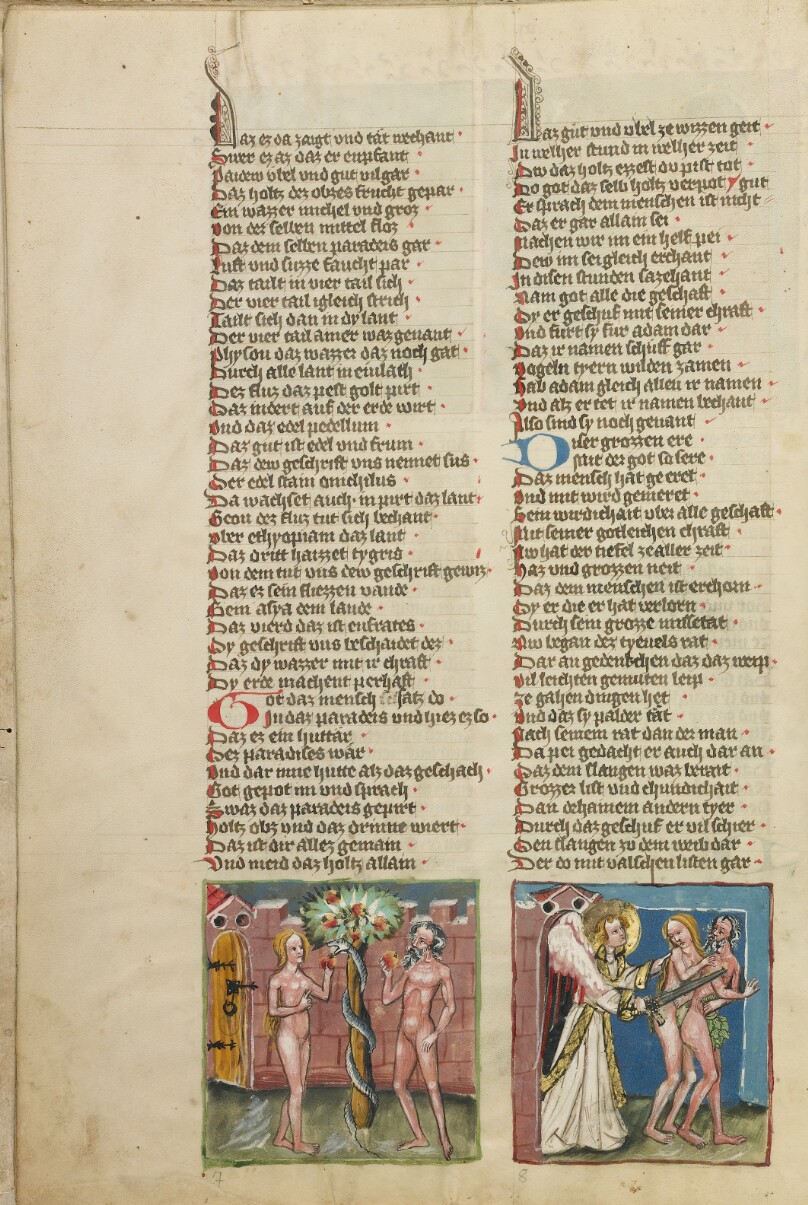 Daz ez da zaigt vnd tät wechant
Swer ez az daz er enpfant
Paidew vbel vnd gut vil gar
Daz holtz dez obzes frucht gepar
Ein wazzer michel vnd groz
Von der selben mittel floz
Daz dem selben paradeis gar
Lust vnd suzze faucht par
Daz tailt in vier tail sich
Der vier tail igleich strich
Tailt sich dan in dy lant
Der vier tail ainer waz genant
Physon daz wazzer daz noch gat
Durch alle lant in euilath
Dez fluz daz pest golt pirt
Daz indert auf der erde wirt
Vnd daz edel pedellium
Daz gut ist edel vnd frum
Daz dew geschrift vns nennet sus
Der edel stain onichilus
Da wachset auch in pirt daz lant
Geon dez fluz tut sich bechant
Vber ethyopiam daz lant
Daz dritt haizzet tygris
Von dem tut vns dew geschrift gewiz
Daz ez sein fliezzen vande
Gein asya dem lande
Daz vierd daz ist eufrates
Dy geschrift vns beschaidet dez
Daz dy wazzer mit ir chraft
Dy erde machent perhaft
Got daz mensch satz do
In daz paradeis vnd hiez ez so
Daz ez ein huttär
Dez paradises wär
Vnd dar inne hutte alz daz geschach
Got gepot im vnd sprach
Swaz daz paradeis gepirt
Holtz obz vnd daz drinne wiert
Daz ist dir allez gemain
Vnd meid daz holtz allain
Daz gut vnd vbel ze wizzen geit
In welher stund in welher zeit
Dw daz holtz ezzest du pist tot
Do got daz selb holtz verpot
gut
Er sprach dem menschen ist nicht
Daz er gar allain sei
Machen wir im ein helf pei
Dew im sei gleich erchant
In disen stunden sazehant
Nam got alle die geschaft
Dy er geschuf mit seiner chraft
Vnd furt sy fur adam dar
Daz ir namen schuff gar
Vogeln tyern wilden zamen
Gab adam gleich allen ir namen
Vnd alz er tet ir namen bechant
Also sind sy noch genant
Diser grozzen ere
Mit der got so sere
Daz mensch hat geeret
Vnd mit wird gemeret
Sein wirdichait vber alle geschaft
Mit seiner gotleichen chraft
Nw hat der tiefel ze aller zeit
Haz vnd grozzen neit
Daz dem menschen ist erchorn
Dy er die er hat verlorn
Durch sein grozze missetat
Nw began dez tyeuels rat
Dar an gedenkchen daz daz weip
Vil leichten gemuten leip
Ze gahen dingen het
Vnd daz sy palder tät
Nach seinem rat dan der man
Da pei gedacht er auch dar an
Daz dem slangen waz berait
Grozzer list vnd chundichait
Dan dehainem andern tyer
Durch daz geschuf er vil schier
Den slangen zu dem weib dar
Der do mit valschen listen gar
7
8